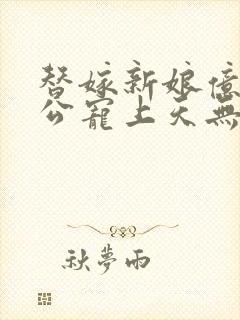 替嫁新娘億
公寵上天無
秋夢雨